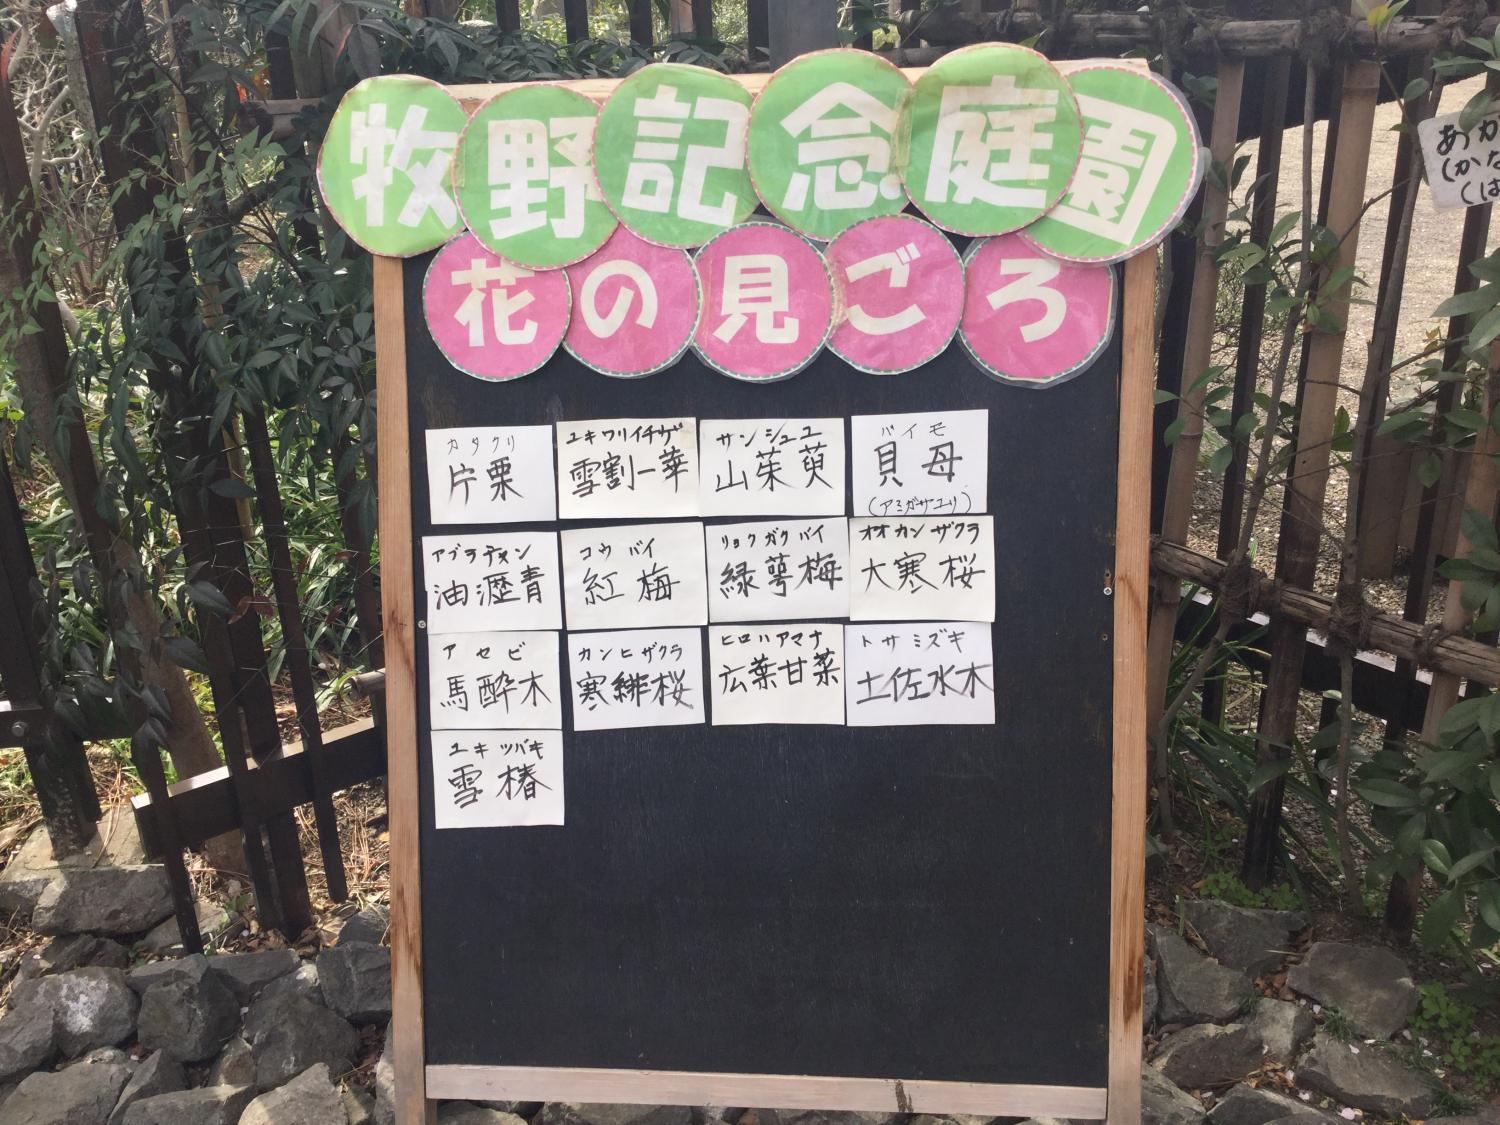 牧野記念庭園
花の見ごろ
カタクリ
片栗
ユキワリイチゲ
雪割一華
サンシュユ
山茱萸
バイモ
貝母
(アミガサユリ)
アブラチャン
油瀝青
コウバイ
紅梅
リョクガクバイ
緑萼梅
オオカンザクラ
大寒桜
アセビ
馬酔木
カンヒザクラ
寒緋桜
ヒロハアマナ
広葉甘菜
トサミズキ
土佐水木
ユキツバキ
雪椿
あか
(かな
(は